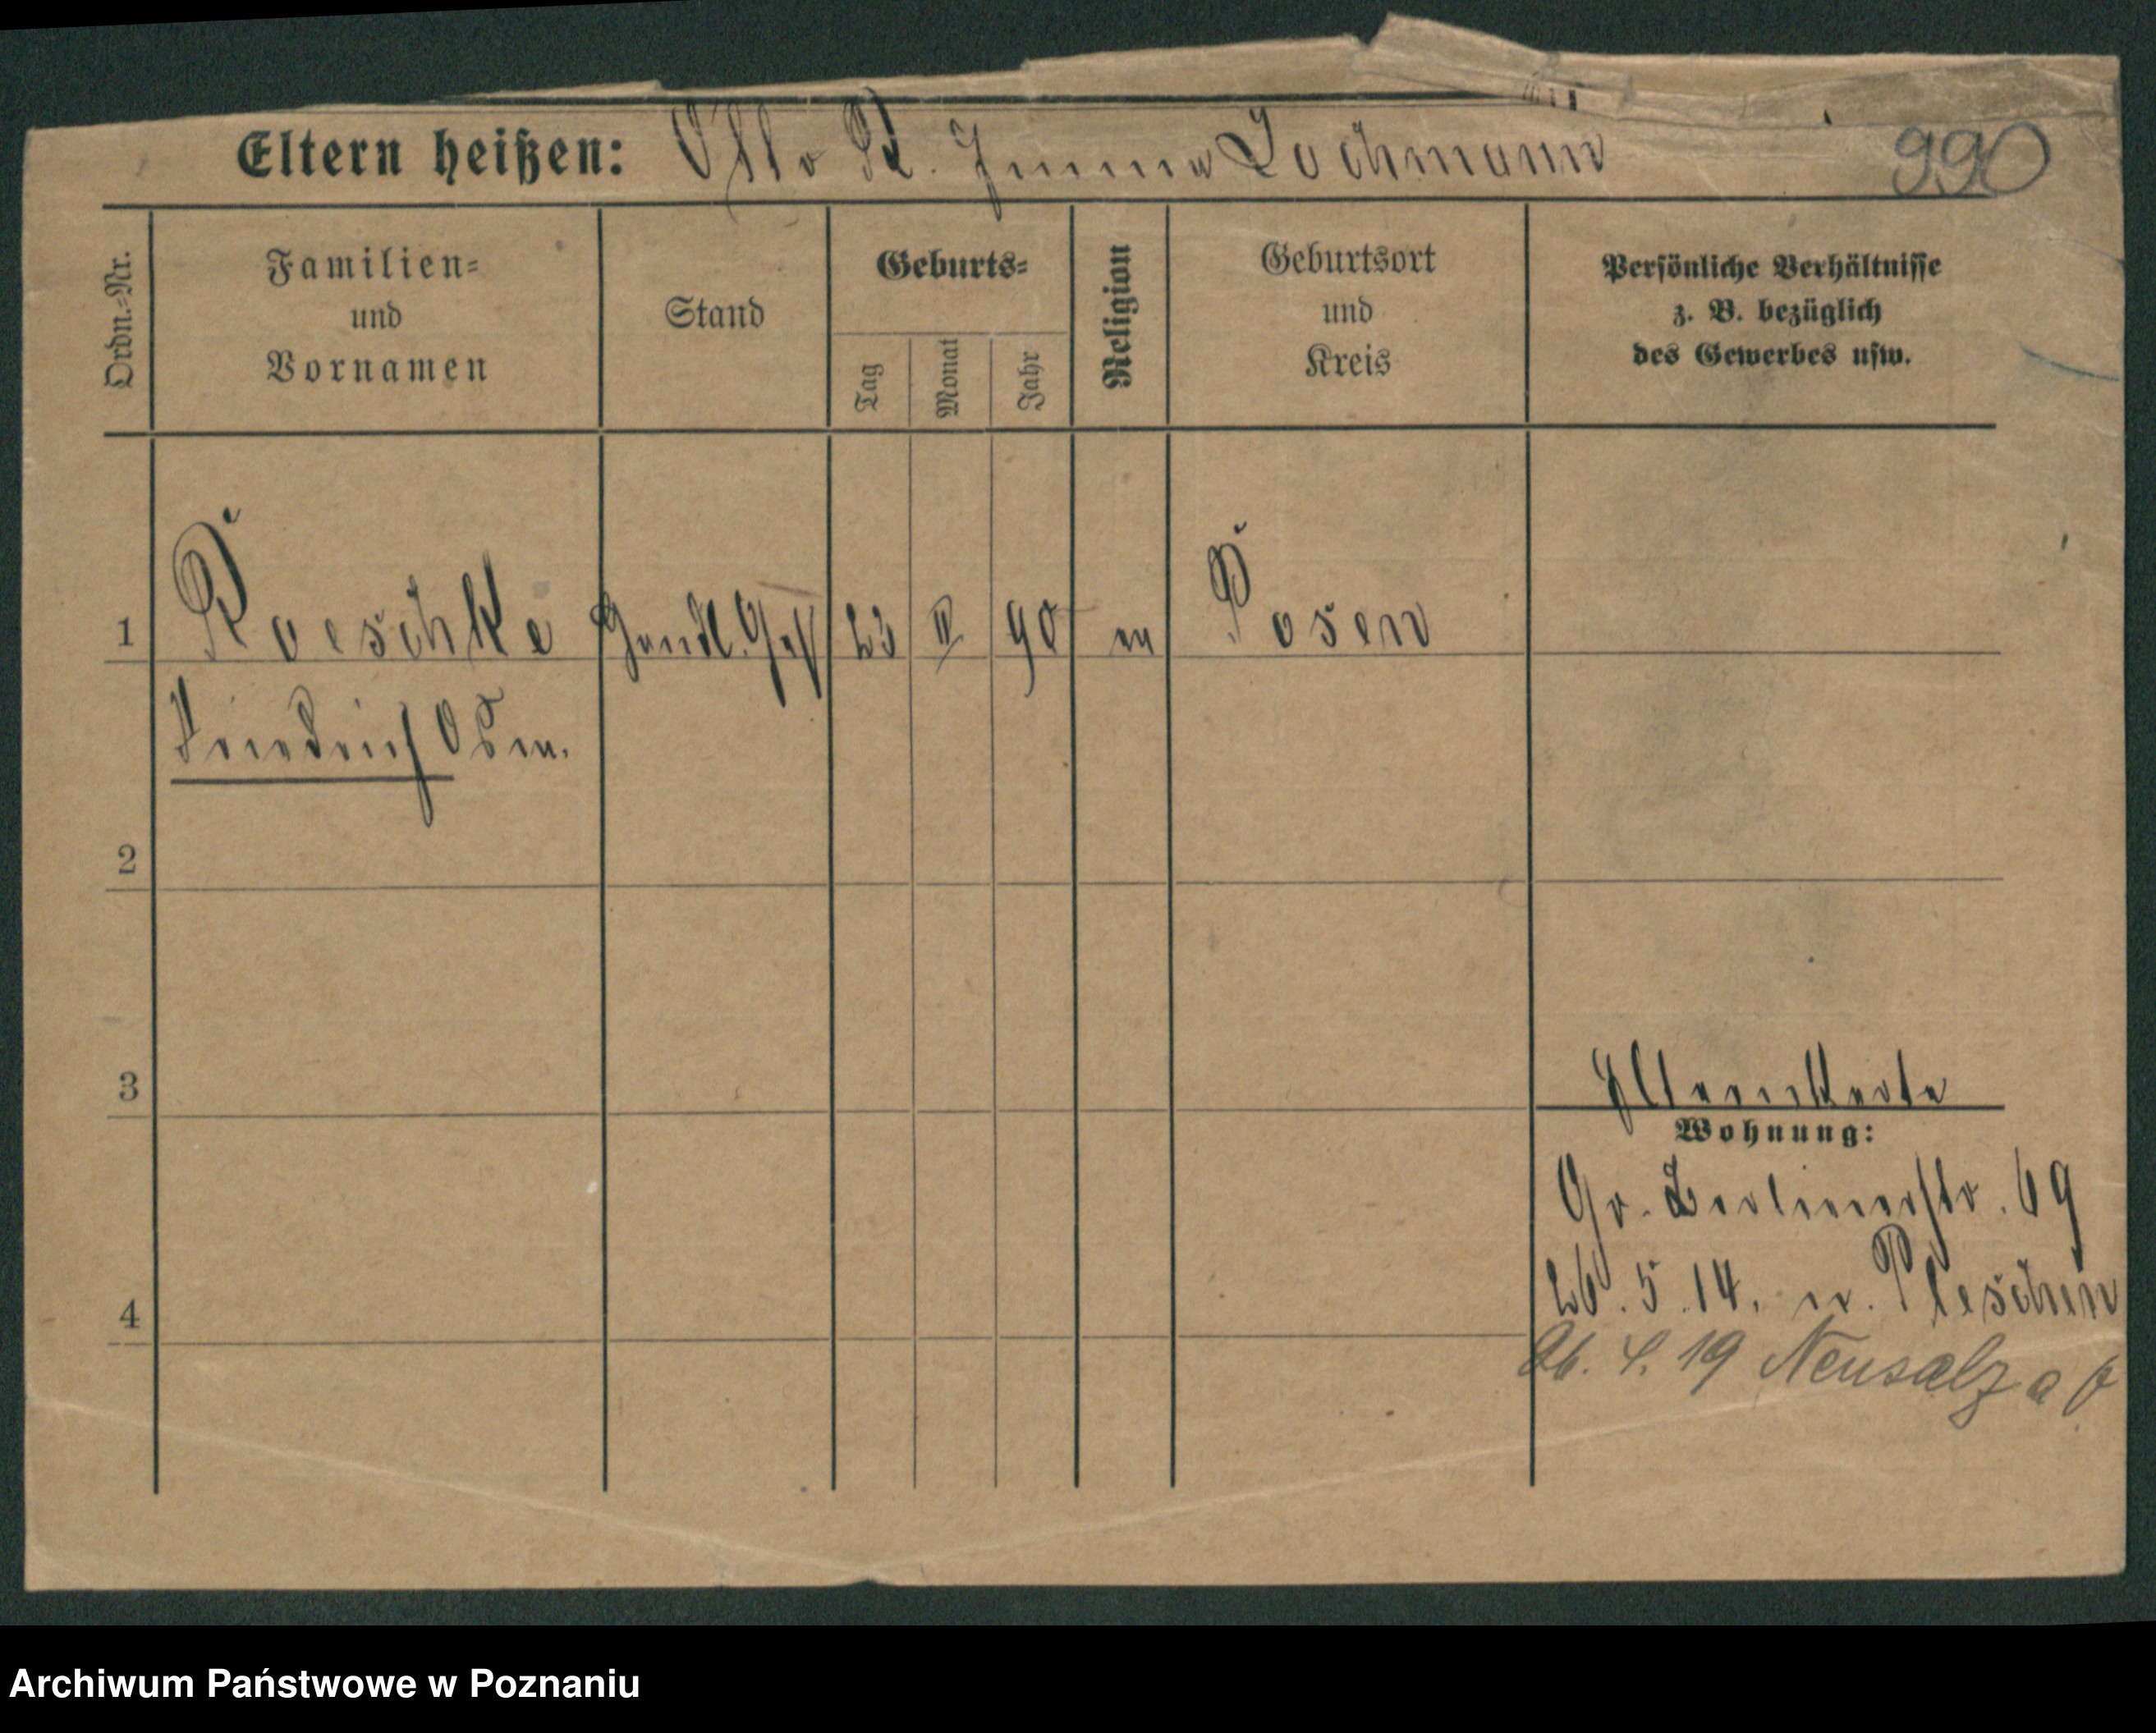 Eltern heißen: Otto R. Emma Lochmann 990
Ordn.=Nr.
Familien=
und
Vornamen
Stand
Geburts=
Tag
Monat
Jahr
Religion
Geburtsort
und
Kreis
Persönliche Verhältnisse
z. B. bezüglich
des Gewerbes usw.
1 Roeschke Handl. Geh 23 II 90 ev Posen
Friedrich
2
3
Elternkarte
Wohnung:
Gr. Berlinerstr. 69
26.5.14. n. Pleschen
4
26. 4. 19 Neusalz a O
Archiwum Państwowe w Poznaniu